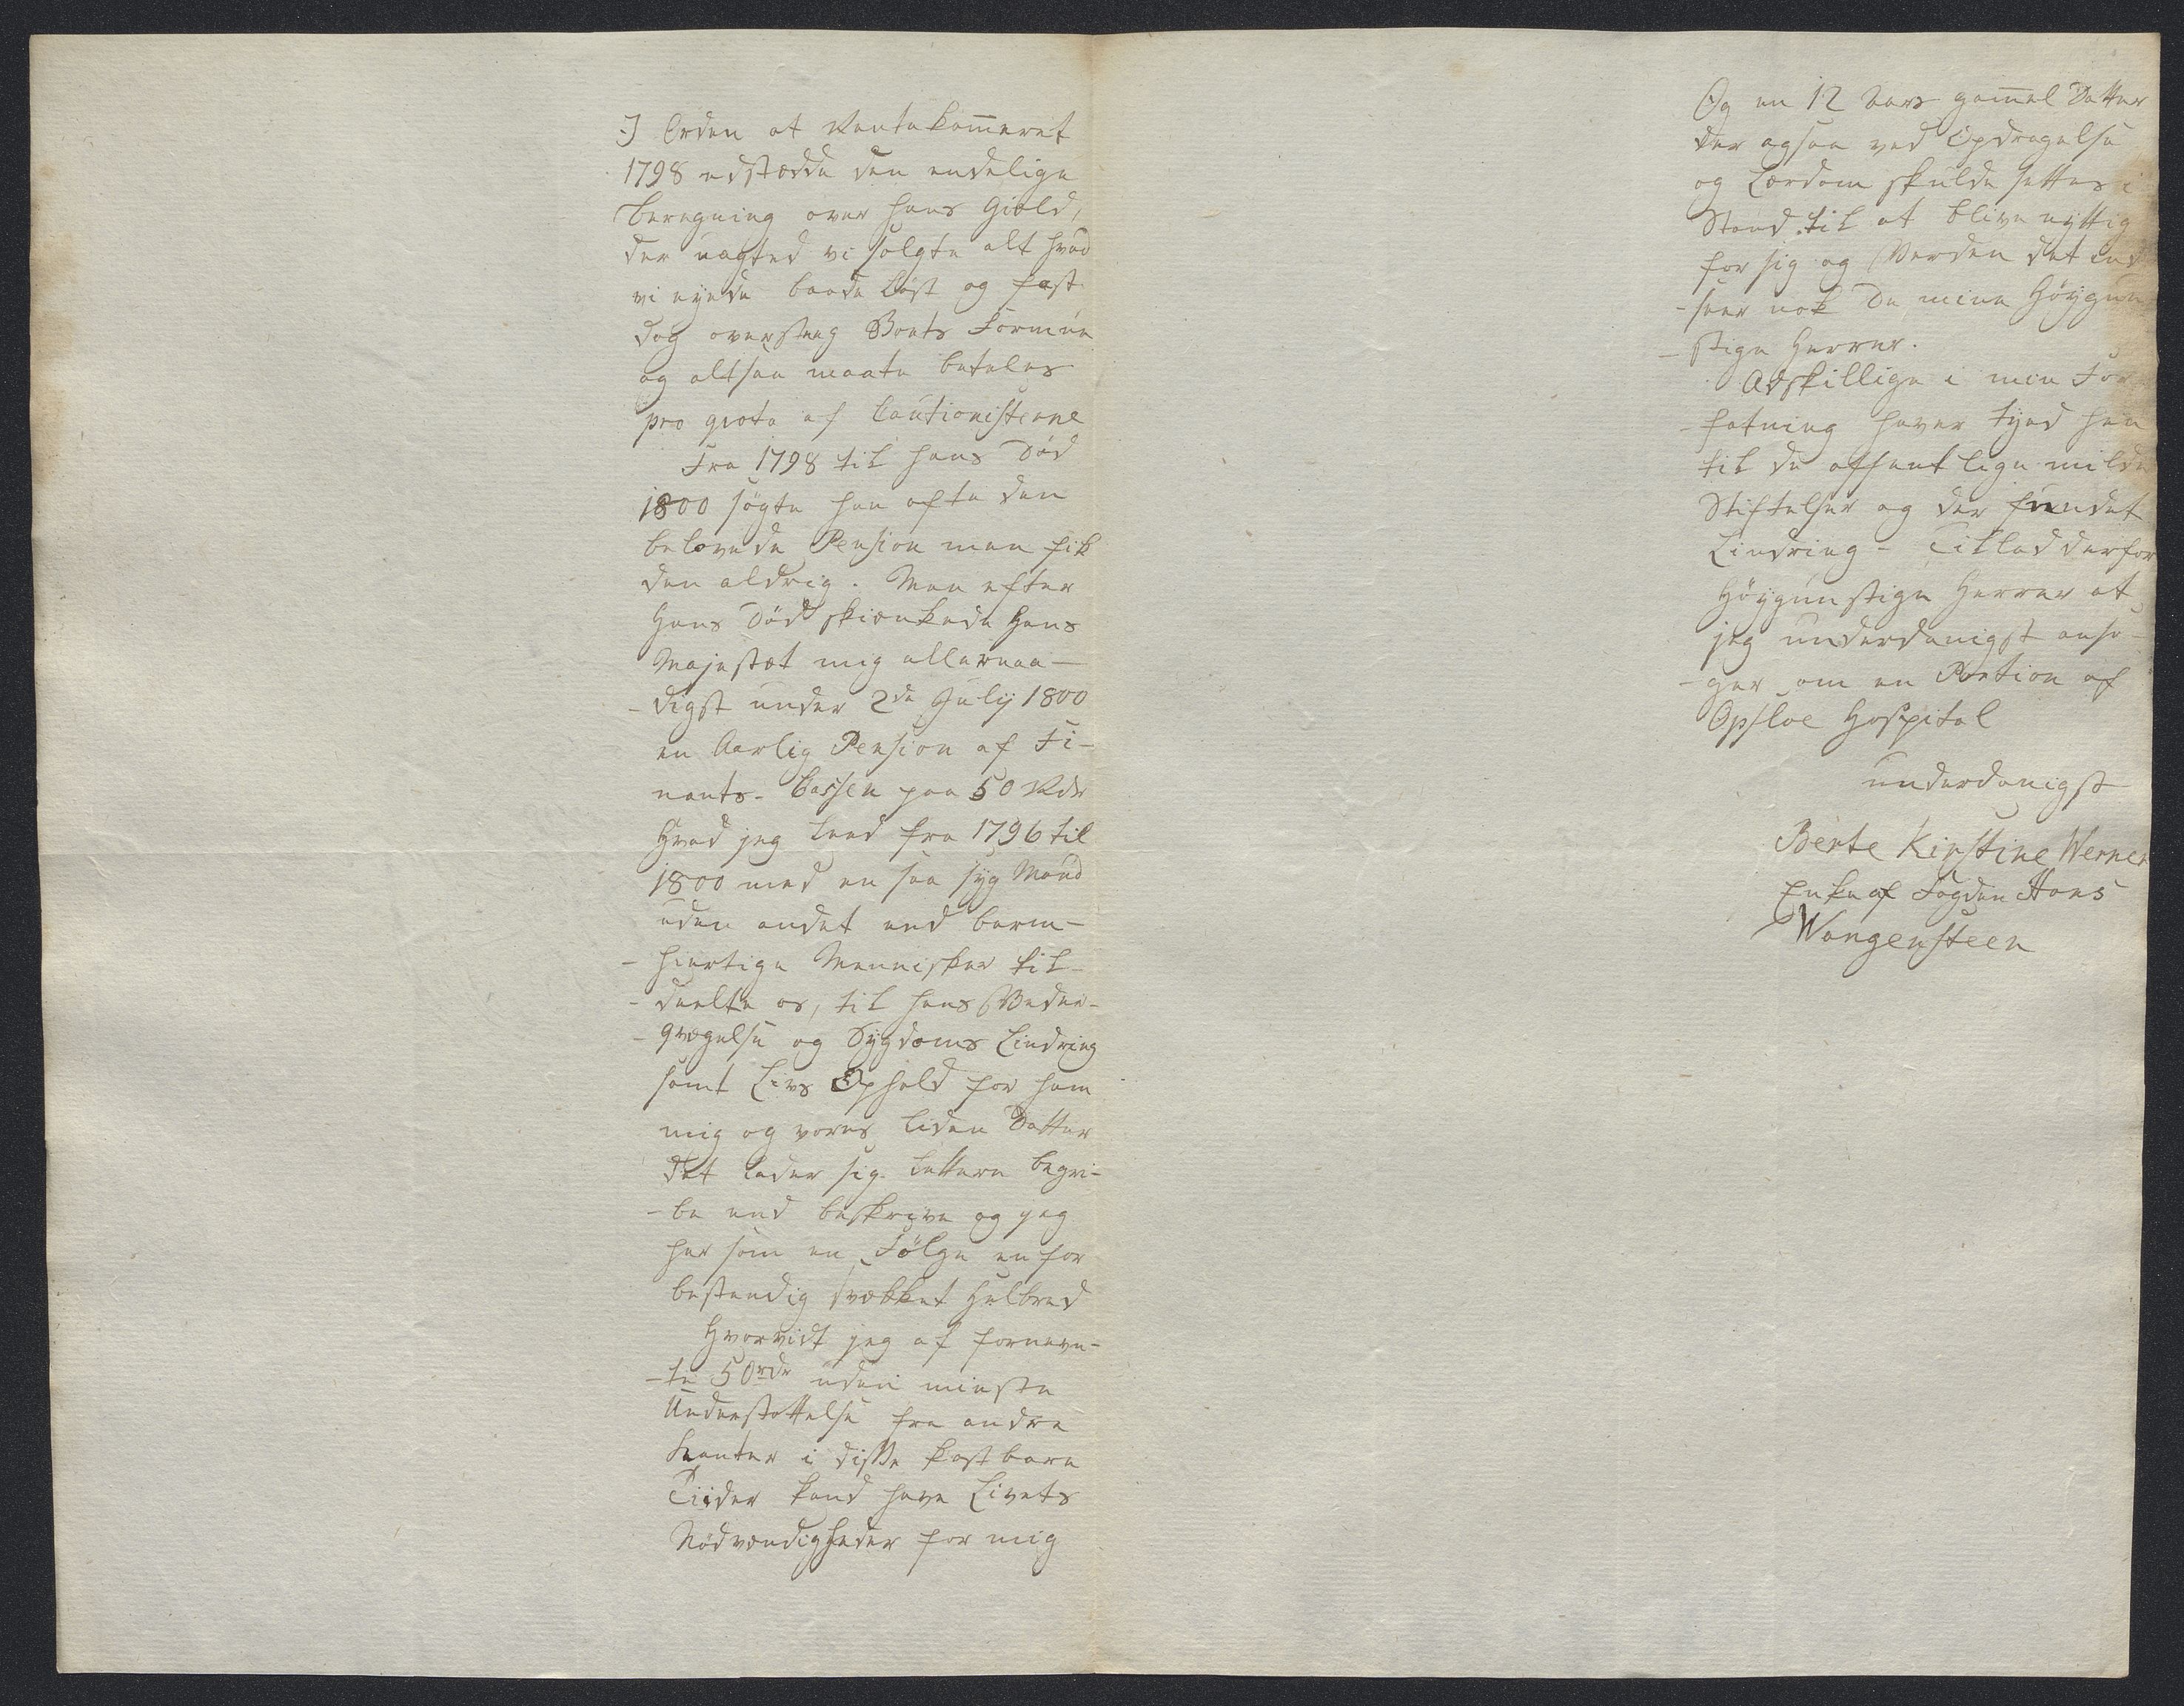 I Orden at Rentekam̄eret
1798 udstædde den endelige
beregning over hans Giæld,
der uagted vi solgte alt hvad
vi eyede baade Løst og fast
dog oversteeg Boets Formue
og altsaa maate betales
pro qvota af Cautionisterne
Fra 1798 til hans Død
1800 søgte han ofte den
belovede Pension men fik
den aldrig. Men efter
Hans Død skienkede Hans
Majestæt mig allernaa-
-digst under 2de July 1800
en Aarlig Pension af Fi-
nants-Cassen paa 50 Rdr
Hvad jeg leed fra 1796 til
1800 med en saa syg Mand
uden andet end barm-
-hiertige Mennisker til-
-deelte os, til hans Veder-
-qvægelse og Sygdoms Lindring
samt Livs Ophold for ham
mig og vores liden Datter
det lader sig lettere begri-
-be end beskrive og jeg
har som en Følge en for
bestendig svækket Helbred
Hvorvidt jeg af fornevn-
-te 50 rdr uden minste
Understøttelse fra andre
kanter i disse kostbare
Tiider kand have Livets
Nødvendigheder for mig
Og en 12 Aars gam̄el Datter
der ogsaa ved Opdragelse
og Lærdom skulde settes i
Stand til at blive nyttig
for sig og Verden det ind
-seer nok De mine Høygun
-stige Herrer.
Adskillige i min For
-fatning haver tyed hen
til de offentlige milde
Stiftelser og der fundet
Lindring - Tillad derfor
Høygunstige Herrer at
jeg underdanigst ansø-
-ger om en Portion af
Opsloe Hospital
underdanigst
Berte Kirstine Werner
Enke af Fogden Hans
Wangensteen